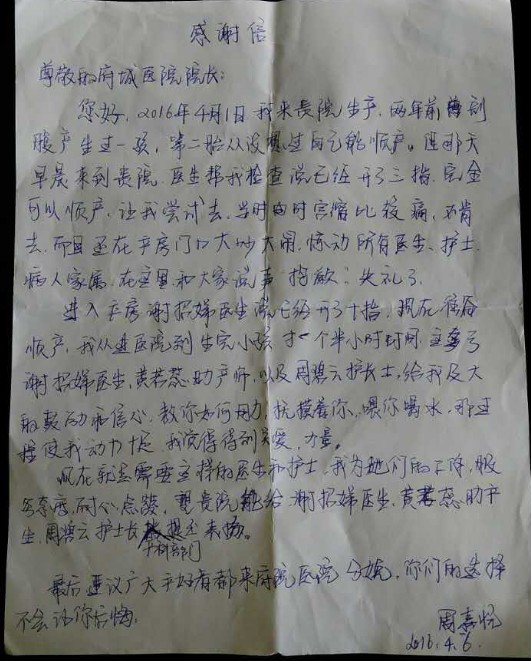 感谢信
尊敬的府城医院院长:
您好,2016年4月1日我来贵院生产,两年前曾剖
腹产生过一孩,第二胎从没想过自己能顺产。且那天
早晨来到贵院,医生帮我检查说已经开了三指,完全
可以顺产,让我尝试去,当时由时宫缩比较痛,不肯
去,而且还在产房门口大吵大闹,惊动所有医生、护士、
病人家属,在这里和大家说声抱歉:失礼了。
进入产房谢招娣医生说已经开了十指,现在很容
顺产,我从进医院到生完小孩才一个半小时时间,主要亏
谢招娣医生,黄若蕊助产师,以及周碧云护长士,给我及大
的鼓动和信心,教你如何用力,抚摸着你,喂你喝水,那过
程使我动力十足,我觉得得到关爱、力量。
现在就是需要这样的医生和护士,我为她们的工作,服
务态度,耐心点赞,望贵院能给谢招娣医生,黄若蕊助产
生,周碧云护士长提出表扬。
开科部门
最后建议广大孕好有都来府院医院分娩,你们的选择
不会让你后悔。
周嘉悦
2016.4.6.